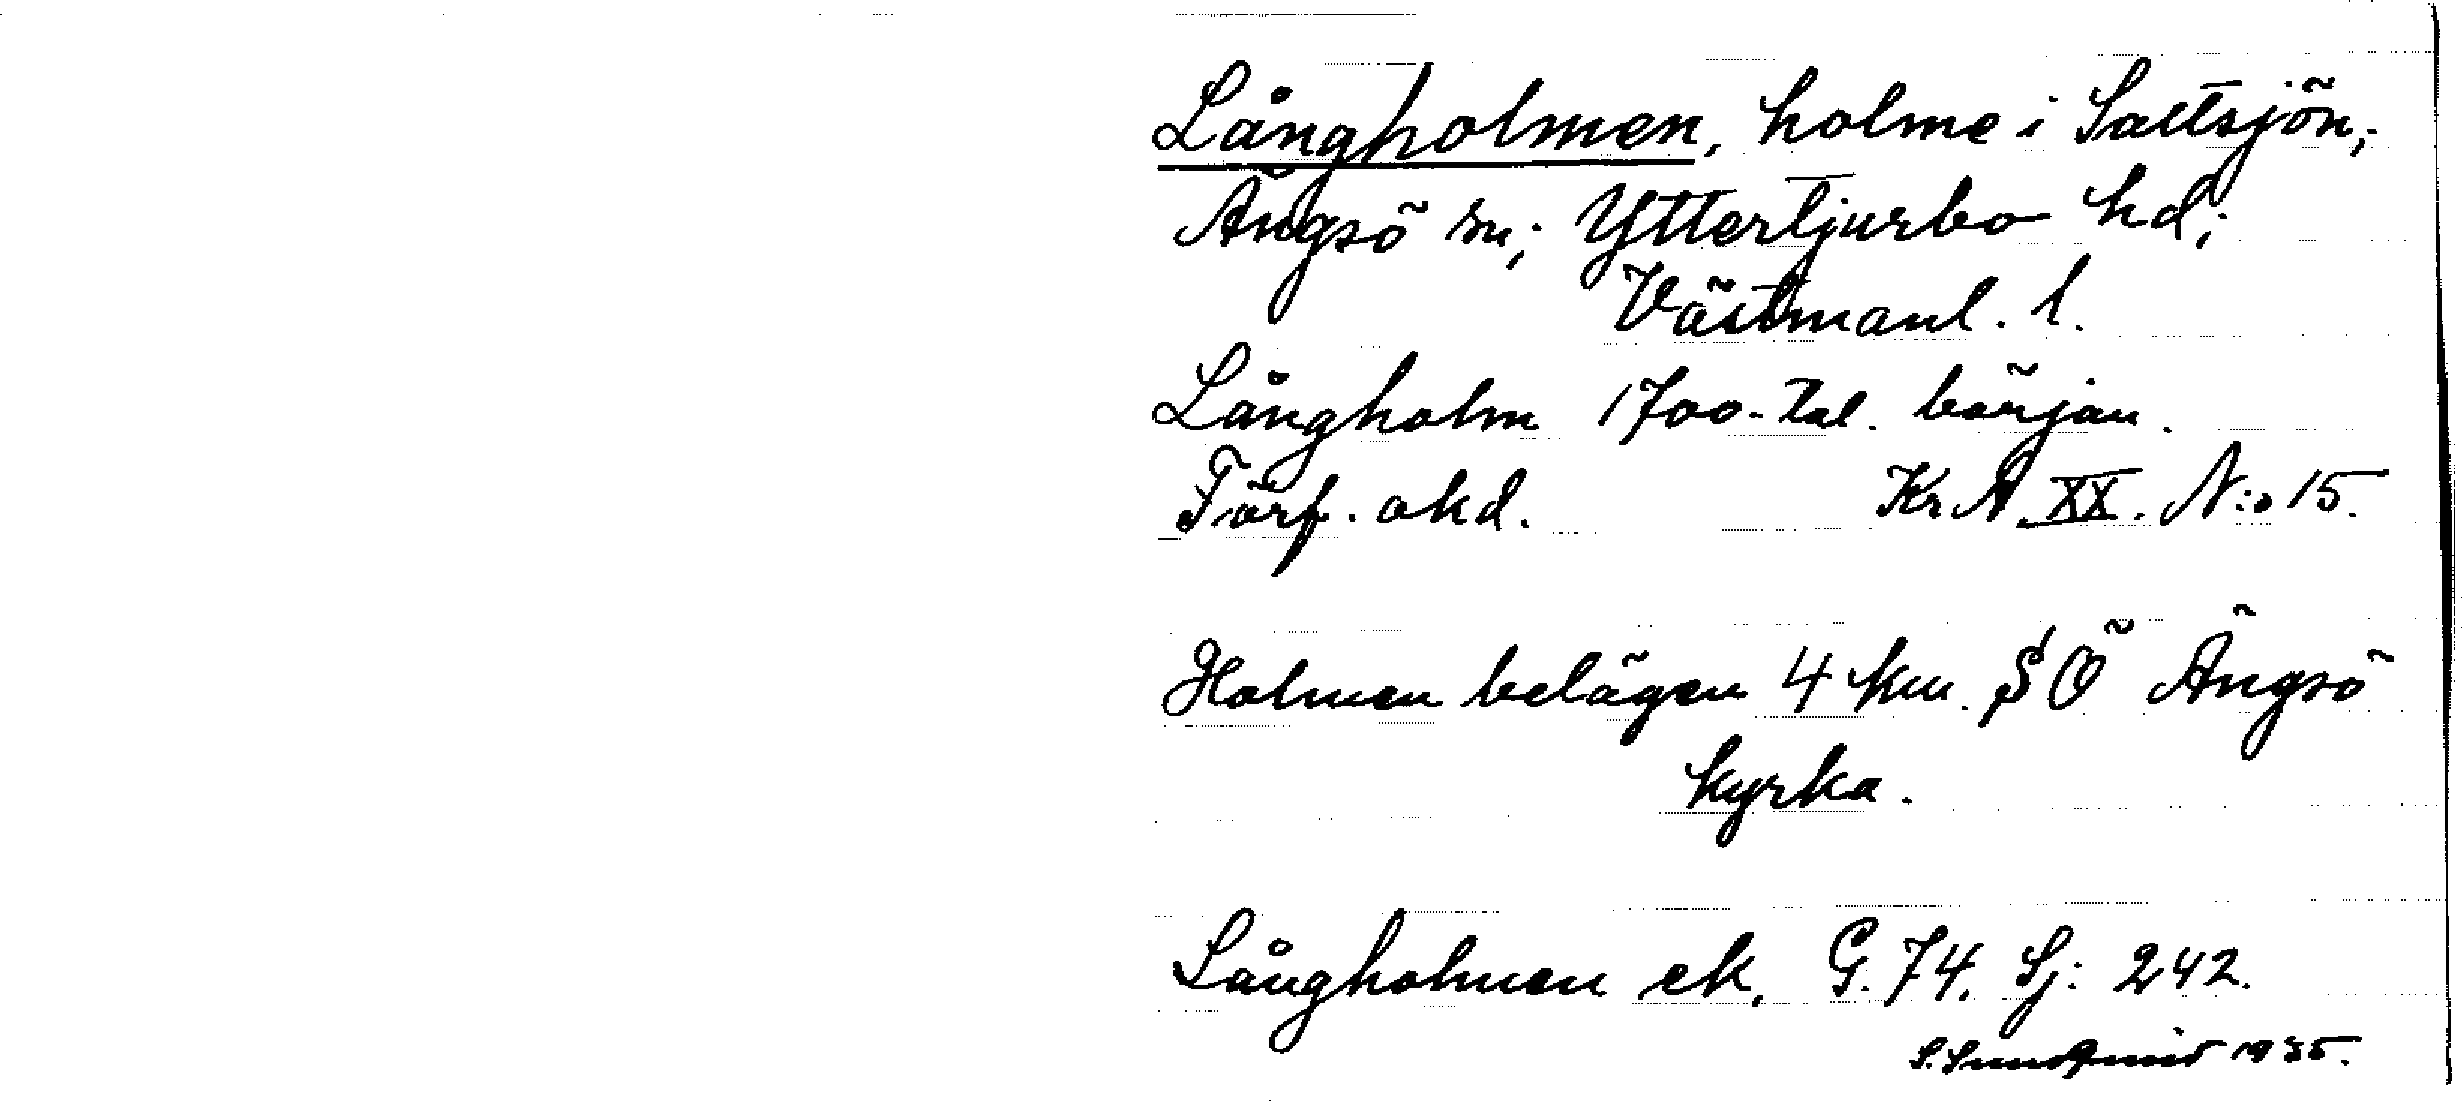 Långholmen, holme i Saltsjön,;
Ängsö sn,; Yttertjurbo hd,;
Västmanl. l.
Långholm 1700-tal. början.
Förf. okd. KrA. XX. N:o 15.
Holmen belägen 4 km. SÖ Ängsö
kyrka.
Långholmen ek. G. 74. Sj: 242.
S. Sundqvist 1935.